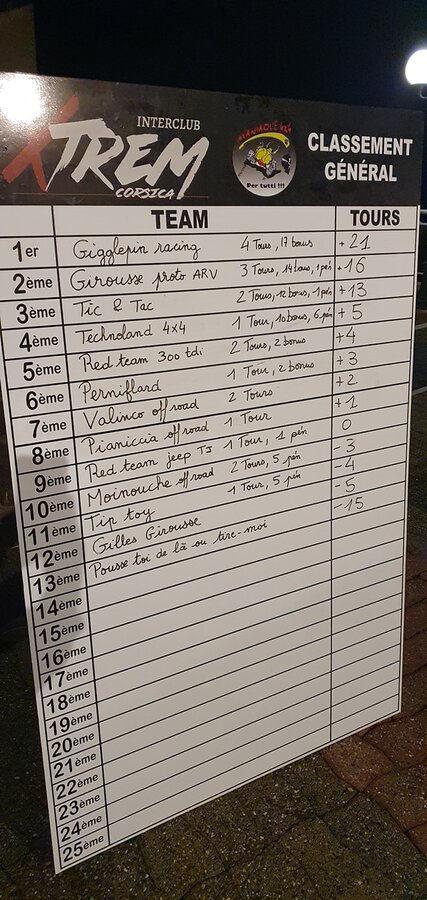 INTERCLUB
XTREM
CORSICA
MANIAQUE 4X4
Per tutti !!!
CLASSEMENT
GÉNÉRAL
TEAM TOURS
1er Gigglepin racing 4 Tours, 17 bonus +21
2ème Girousse proto ARV 3 Tours, 14 bonus, 1 pén +16
3ème Tic & Tac 2 Tours, 12 bonus, 1 pén +13
4ème Technoland 4x4 1 Tour, 10 bonus, 6 pén +5
5ème Red team 300 tdi 2 Tours, 2 bonus +4
6ème Perniflard 1 Tour, 2 bonus +3
7ème Valinco off road 2 Tours +2
8ème Pianiccia off road 1 Tour +1
9ème Red team jeep TJ 1 Tour, 1 pén 0
10ème Moinouche offroad 2 Tours, 5 pén -3
11ème Tip toy 1 Tour, 5 pén -4
12ème Gilles Girousse -5
13ème Pousse toi de là ou tire-moi -15
14ème
15ème
16ème
17ème
18ème
19ème
20ème
21ème
22ème
23ème
24ème
25ème